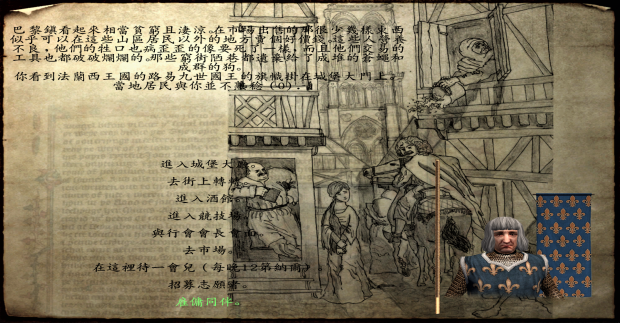 巴黎鎮看起來相當貧窮且淒涼。在市場出售的那很少幾樣東西
似乎可以在這些山區居民以外的地方賣個好價錢。這些人營養
不良，他們的牲口也病歪歪的像要死了一樣，而且他們交易的
工具也都破破爛爛的。那些窮街陋巷都遺棄給了成堆的蒼蠅和
成群的狗。
你看到法蘭西王國的路易九世國王的旗幟掛在城堡大門上。
當地居民與你並不熟絡 (0)。
進入城堡大廳。
去街上轉轉。
進入酒館。
進入競技場。
與行會會長會面。
去市場。
在這裡待一會兒（每晚12第納爾）
招募志願者。
雇傭同伴。